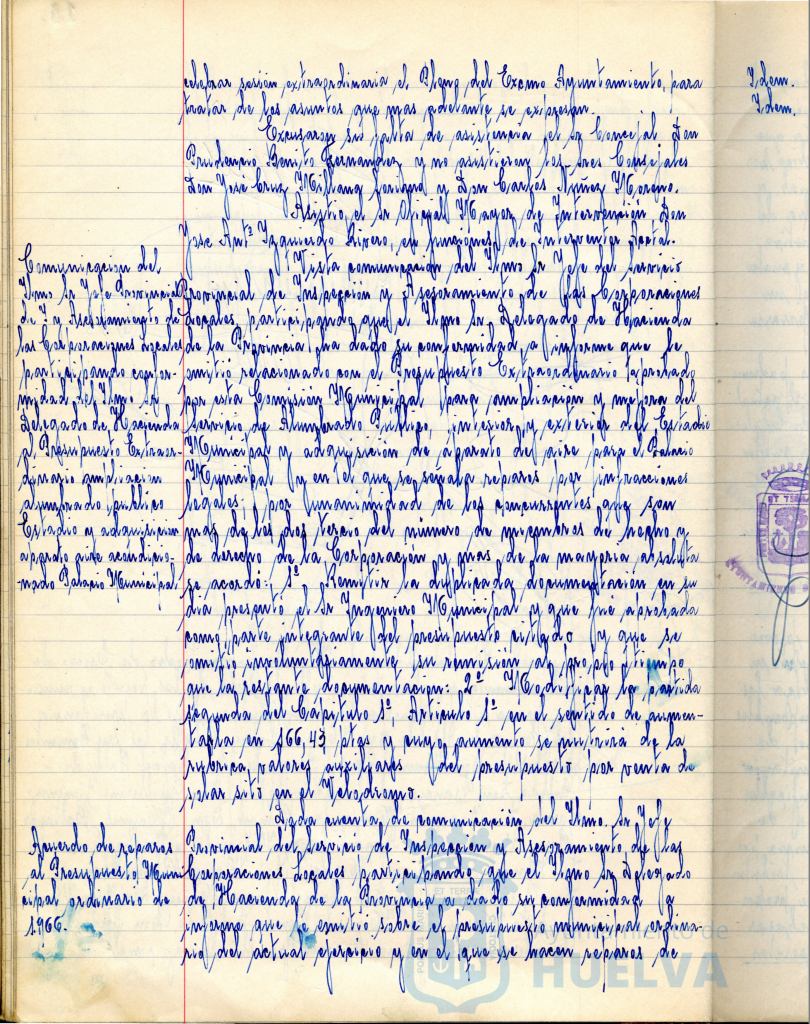 celebrar sesión extraordinaria el Pleno del Excmo Ayuntamiento, para
tratar de los asuntos que mas adelante se expresan.
Excusaron su falta de asistencia el Sr Concejal Don
Prudencio Benito Fernandez y no asistieron los Sres Consejales
Don José Cruz Millang y Don Carlos Nuñez Moreno.
Asistio el Sr Oficial Mayor de Intervención Don
Jose Antº Izquierdo Rivero, en funciones de Interventor Acctal.
Comunicacion del
Ilmo Sr Jefe Provincial
de I. y Asesoramiento de
las Corporaciones Locales
participando confor-
midad del Ilmo Sr
Delegado de Hacienda
al Presupuesto Extraor-
dinario ampliacion
alumbrado publico
Estadio y adquisicion
aparato aire acondicio-
-nado Palacio Municipal
Vista comunicacion del Ilmo Sr Jefe del Servicio
Provincial de Inspección y Asesoramiento de las Corporaciones
Locales participando que el Ilmo Sr Delegado de Hacienda
de la Provincia ha dado su conformidad a informe que le
emitió relacionado con el Presupuesto Extraordinario aprobado
por esta Comisión Municipal para ampliación y mejora del
Servicio de Alumbrado Público, interior y exterior del Estadio
Municipal y adquisición de aparato de aire para el Palacio
Municipal y en el que se señala reparos por infraciones
legales; por unanimidad de los concurrentes que son
mas de los dos tercio del número de miembros de hecho y
de derecho de la Corporación y mas de la mayoria absoluta
se acordó: 1º Remitir la duplicada documentación en su
dia presentó el Sr Ingeniero Municipal y que fué aprobada
como parte integrante del presupuesto citado y que se
omitió involuntariamente su remisión al propio tiempo
que la restante documentacion: 2º Modificar la partida
segunda del Capitulo 1º, Articulo 1º en el sentido de aumen-
tarla en 166,43 ptas y cuyo aumento se nutrirá de la
rúbrica valores auxiliares del presupuesto por venta de
solar sito en el Velodromo.
Acuerdo de reparos
al Presupuesto Muni
cipal ordinario de
1966.
Dada cuenta de comunicación del Ilmo. Sr Jefe
Provincial del Servicio de Inspección y Asesoramiento de las
Corporaciones Locales participando que el Ilmo Sr Delegado
de Hacienda de la Provincia a dado su conformidad a
informe que le emitió sobre el presupuesto municipal ordina-
rio del actual ejercicio y en el que se hacen reparos de
Idem.
Idem.
Ayuntamiento de
HUELVA